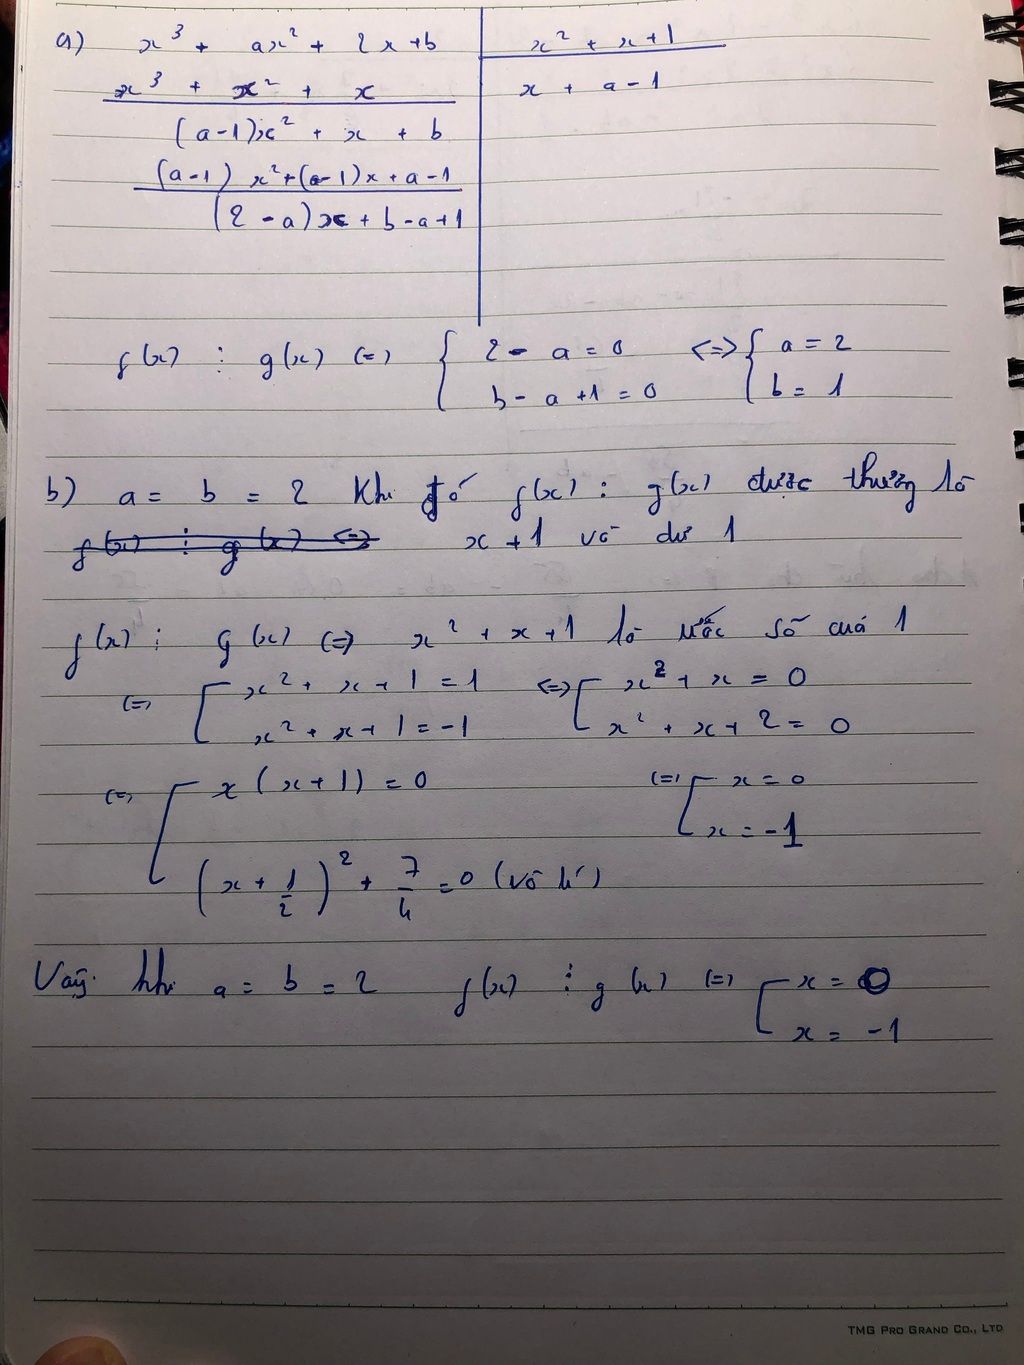 a) x³ + ax² + 2x + b | x² + x + 1
x³ + x² + x | x + a - 1
(a-1)x² + x + b
(a-1) x² + (a-1)x + a - 1
(2 - a)x + b - a + 1
f(x) ⋮ g(x) (=) { 2 - a = 0 <=> { a = 2
b - a + 1 = 0 b = 1
b) a = b = 2 Khi đó f(x) : g(x) được thương là
f(x) ⋮ g(x) <=> x + 1 và dư 1
f(x) ⋮ G(x) (=) x² + x + 1 là ước số của 1
(=) [ x² + x + 1 = 1 <=> [ x² + x = 0
x² + x + 1 = -1 x² + x + 2 = 0
(=) [ x (x + 1) = 0 (=) [ x = 0
x = -1
(x + 1/2)² + 7/4 = 0 (vô lí)
Vậy khi a = b = 2 f(x) ⋮ g(x) (=) [ x = 0
x = -1
TMG PRO GRAND CO., LTD